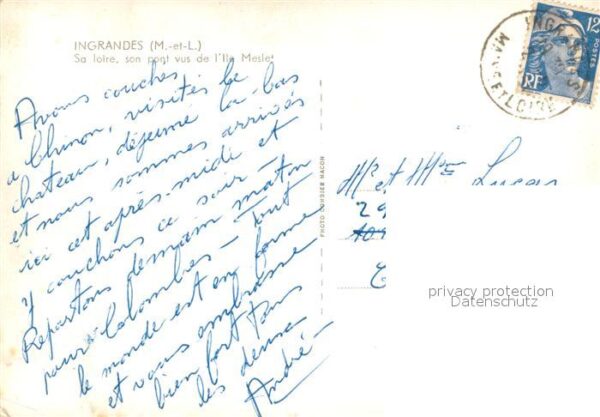 INGRANDES (M.-et-L.)
Sa loire, son pont vus de l'Ile Meslet
Avons couchés
a Chinon, visités le
chateau, déjeuné la-bas
et nous sommes arrivés
ici cet après-midi et
y couchons ce soir -
Repartons demain matin
pour Colombes - Tout
le monde est en forme
et vous embrasse
bien fort tous
les deux
André -
PHOTO COMBIER MACON
12
POSTES
RF
MAINE ET LOIRE
Mr et Mme Lucas
29
privacy protection
Datenschutz